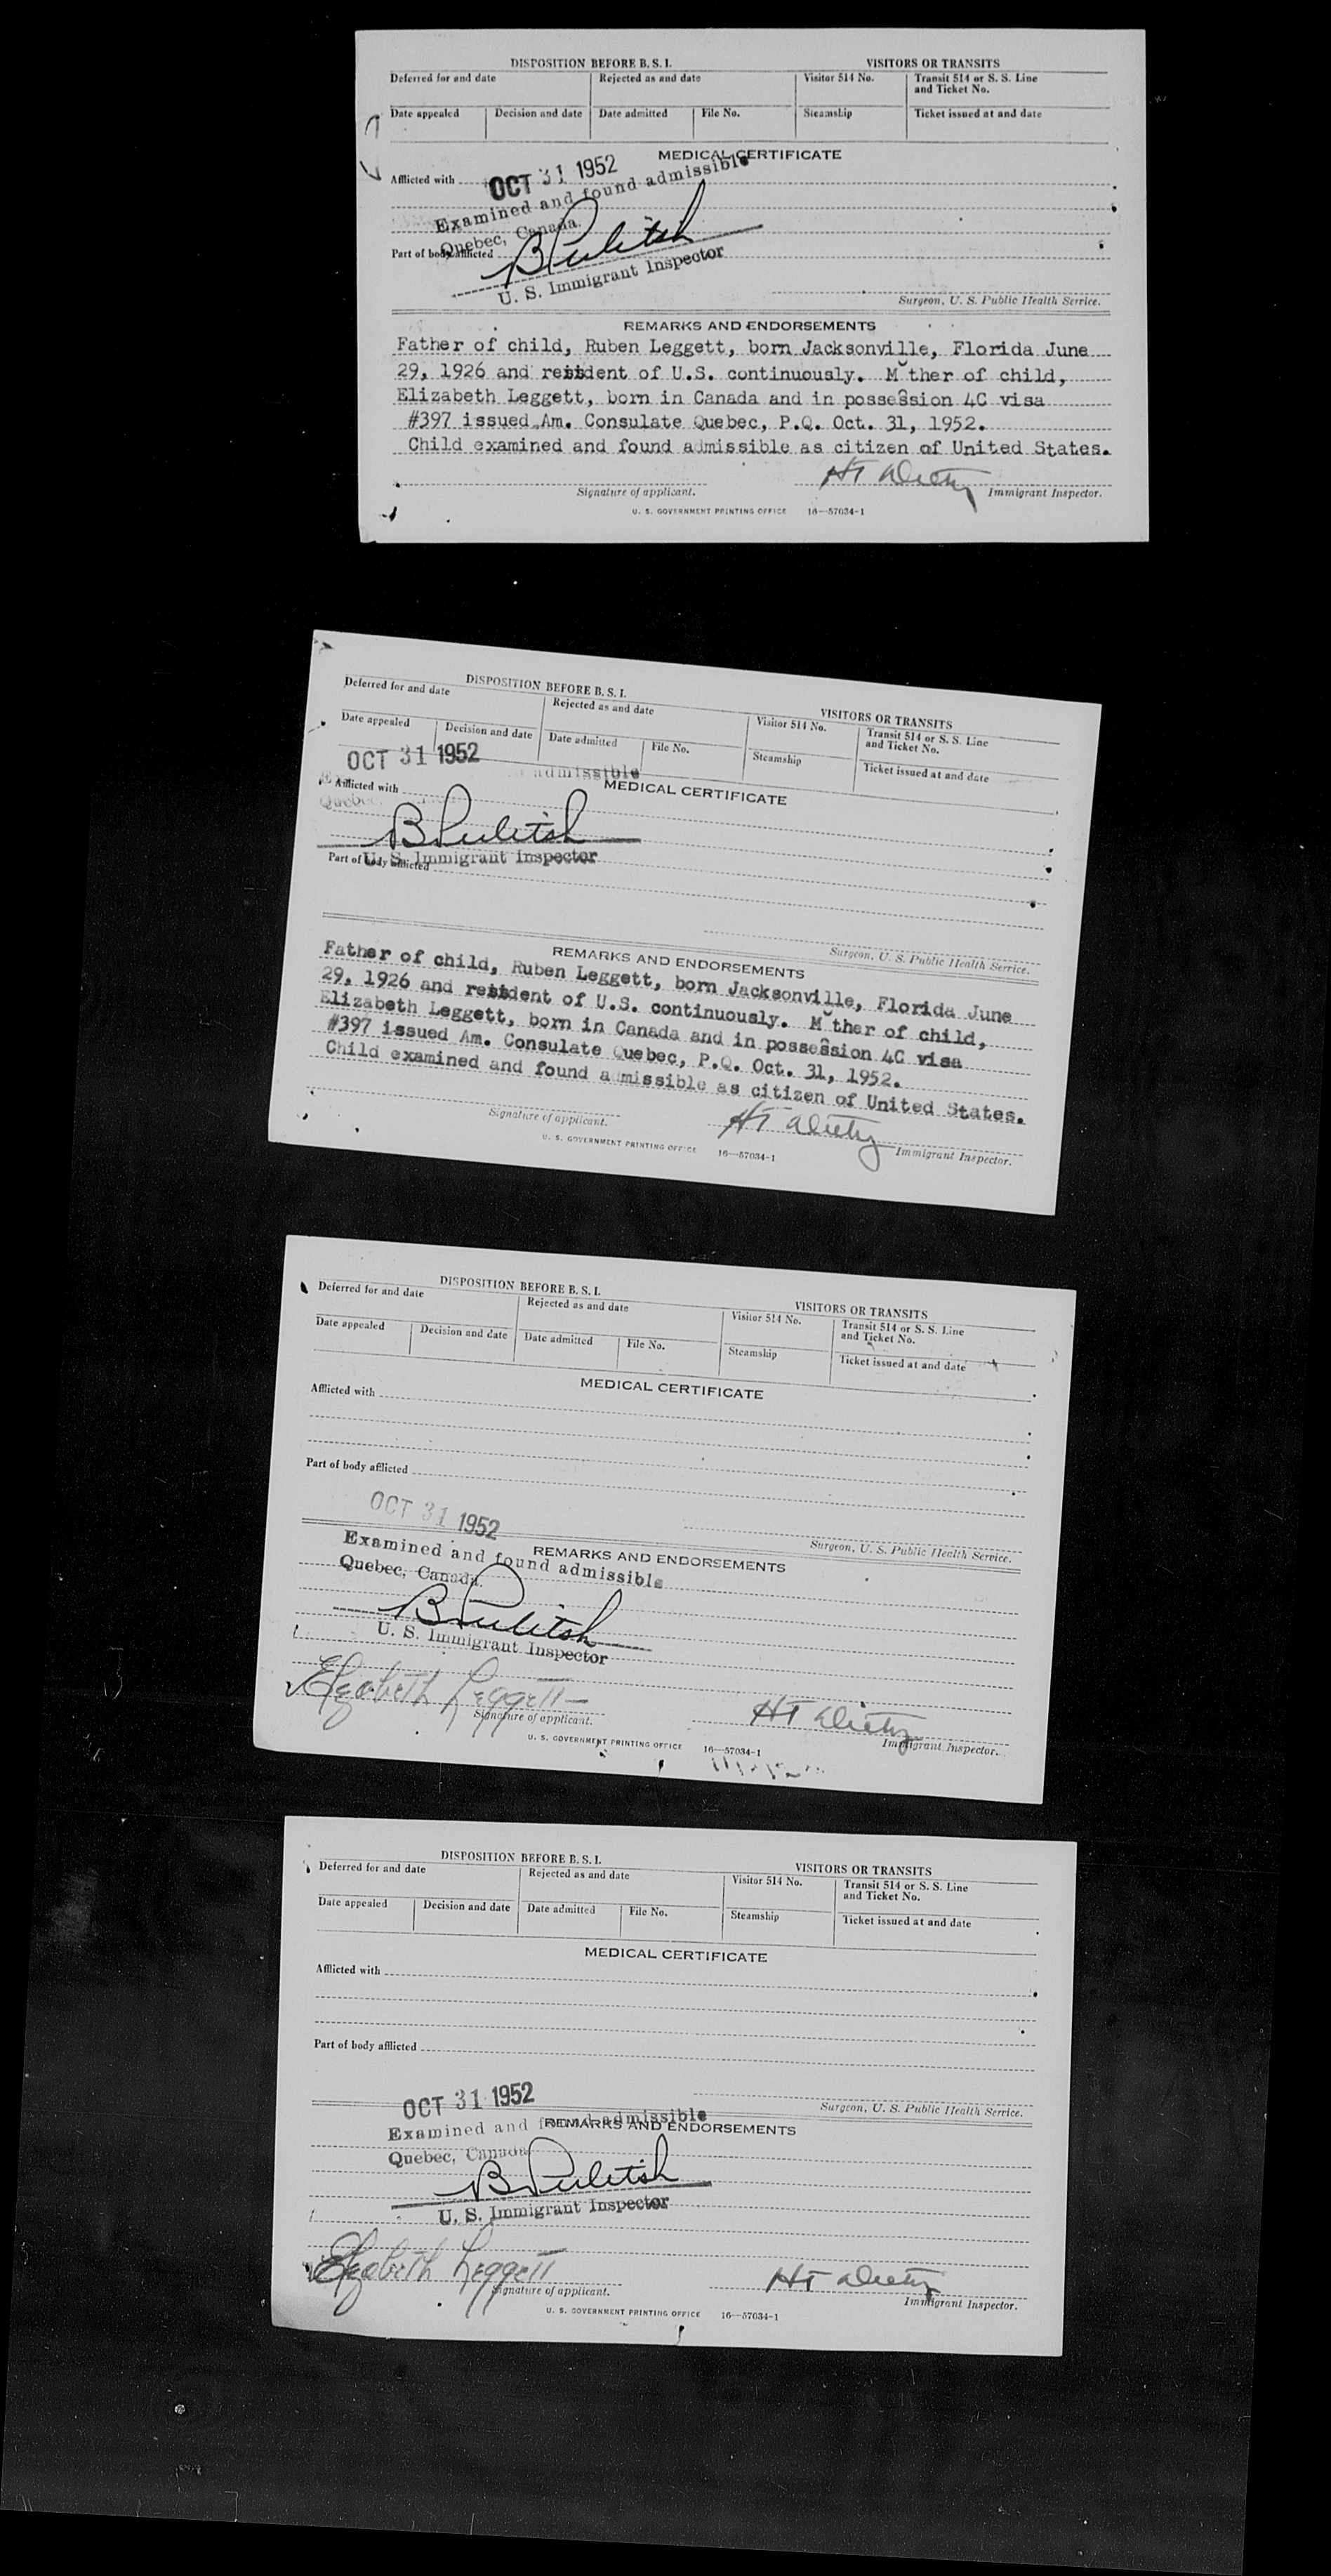 DISPOSITION BEFORE B. S. I. VISITORS OR TRANSITS
Deferred for and date Rejected as and date Visitor 514 No. Transit 514 or S. S. Line and Ticket No.
Date appealed Decision and date Date admitted File No. Steamship Ticket issued at and date
MEDICAL CERTIFICATE
Afflicted with
OCT 31 1952
Examined and found admissible
Quebec, Canada.
Part of body afflicted
U. S. Immigrant Inspector
Surgeon, U. S. Public Health Service.
REMARKS AND ENDORSEMENTS
Father of child, Ruben Leggett, born Jacksonville, Florida June
29, 1926 and resident of U.S. continuously. Mother of child,
Elizabeth Leggett, born in Canada and in possession 4C visa
#397 issued Am. Consulate Quebec, P.Q. Oct. 31, 1952.
Child examined and found admissible as citizen of United States.
Signature of applicant. Immigrant Inspector.
U. S. GOVERNMENT PRINTING OFFICE 16—57034-1
DISPOSITION BEFORE B. S. I. VISITORS OR TRANSITS
Deferred for and date Rejected as and date Visitor 514 No. Transit 514 or S. S. Line and Ticket No.
Date appealed Decision and date Date admitted File No. Steamship Ticket issued at and date
OCT 31 1952
admissible
MEDICAL CERTIFICATE
Afflicted with
Part of body afflicted
U. S. Immigrant Inspector
Surgeon, U. S. Public Health Service.
REMARKS AND ENDORSEMENTS
Father of child, Ruben Leggett, born Jacksonville, Florida June
29, 1926 and resident of U.S. continuously. Mother of child,
Elizabeth Leggett, born in Canada and in possession 4C visa
#397 issued Am. Consulate Quebec, P.Q. Oct. 31, 1952.
Child examined and found admissible as citizen of United States.
Signature of applicant. Immigrant Inspector.
U. S. GOVERNMENT PRINTING OFFICE 16—57034-1
DISPOSITION BEFORE B. S. I. VISITORS OR TRANSITS
Deferred for and date Rejected as and date Visitor 514 No. Transit 514 or S. S. Line and Ticket No.
Date appealed Decision and date Date admitted File No. Steamship Ticket issued at and date
MEDICAL CERTIFICATE
Afflicted with
Part of body afflicted
OCT 31 1952
Surgeon, U. S. Public Health Service.
REMARKS AND ENDORSEMENTS
Examined and found admissible
Quebec, Canada.
U. S. Immigrant Inspector
Elizabeth Leggett
Signature of applicant. Immigrant Inspector.
U. S. GOVERNMENT PRINTING OFFICE 16—57034-1
DISPOSITION BEFORE B. S. I. VISITORS OR TRANSITS
Deferred for and date Rejected as and date Visitor 514 No. Transit 514 or S. S. Line and Ticket No.
Date appealed Decision and date Date admitted File No. Steamship Ticket issued at and date
MEDICAL CERTIFICATE
Afflicted with
Part of body afflicted
OCT 31 1952
Surgeon, U. S. Public Health Service.
REMARKS AND ENDORSEMENTS
Examined and found admissible
Quebec, Canada
U. S. Immigrant Inspector
Elizabeth Leggett
Signature of applicant. Immigrant Inspector.
U. S. GOVERNMENT PRINTING OFFICE 16—57034-1